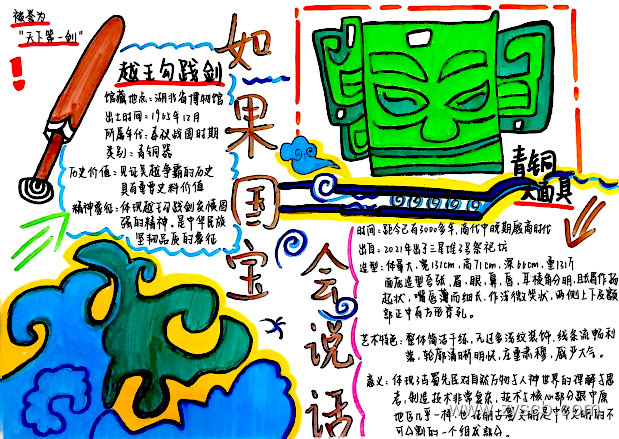 被誉为
"天下第一剑"
越王勾践剑
馆藏地点：湖北省博物馆
出土时间：1965年12月
所属年代：春秋战国时期
类别：青铜器
历史价值：见证吴越争霸的历史
具有重要史料价值
精神象征：体现越王勾践卧薪
强的精神，是中华民族
坚韧品质的象征
如果国宝
会说话
青铜
大面具
时间：距今已有3000多年，商代中晚期
出自：2021年出于三星堆3号祭祀坑
造型：体量大，宽131cm，高71cm，深66cm，重131斤
面部造型夸张，眉、眼、鼻、唇、耳棱角分明，
起状，嘴唇薄而细长，作浅微笑状，两侧上下及额
部正中有方形穿孔。
艺术特色：整体简洁干练，无过多浅纹装饰，线条流畅利
落，轮廓清晰明快，庄重肃穆，威严大气。
意义：体现古蜀先民对自然万物与人神世界的理解与思
考，制造技术非常复杂，技术与核心部分跟中原
地区几乎一样，也说明古蜀文明是中华文明的不
可分割的一个组成部分。
www.zyscb.com